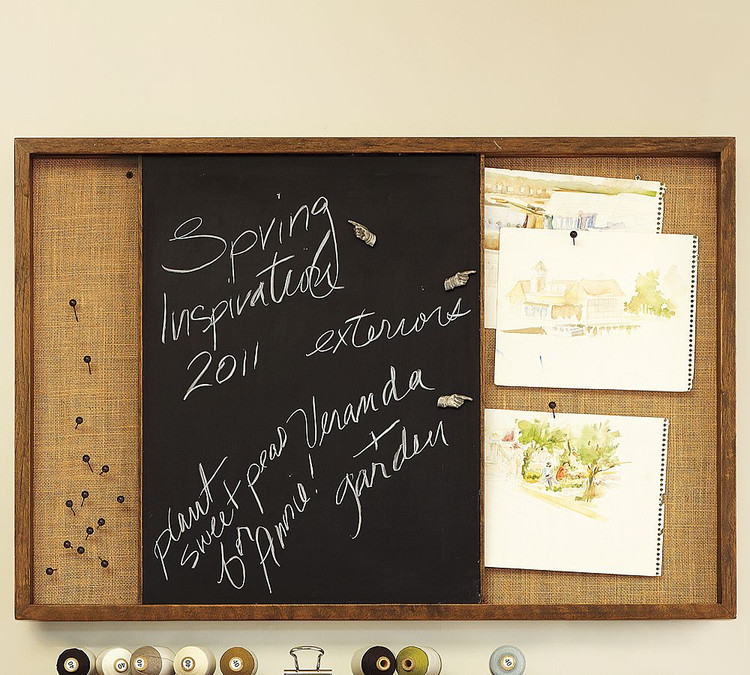 Spring
Inspiration
2011
exteriors
Veranda
+
garden
plant
sweet peas
for Annie!